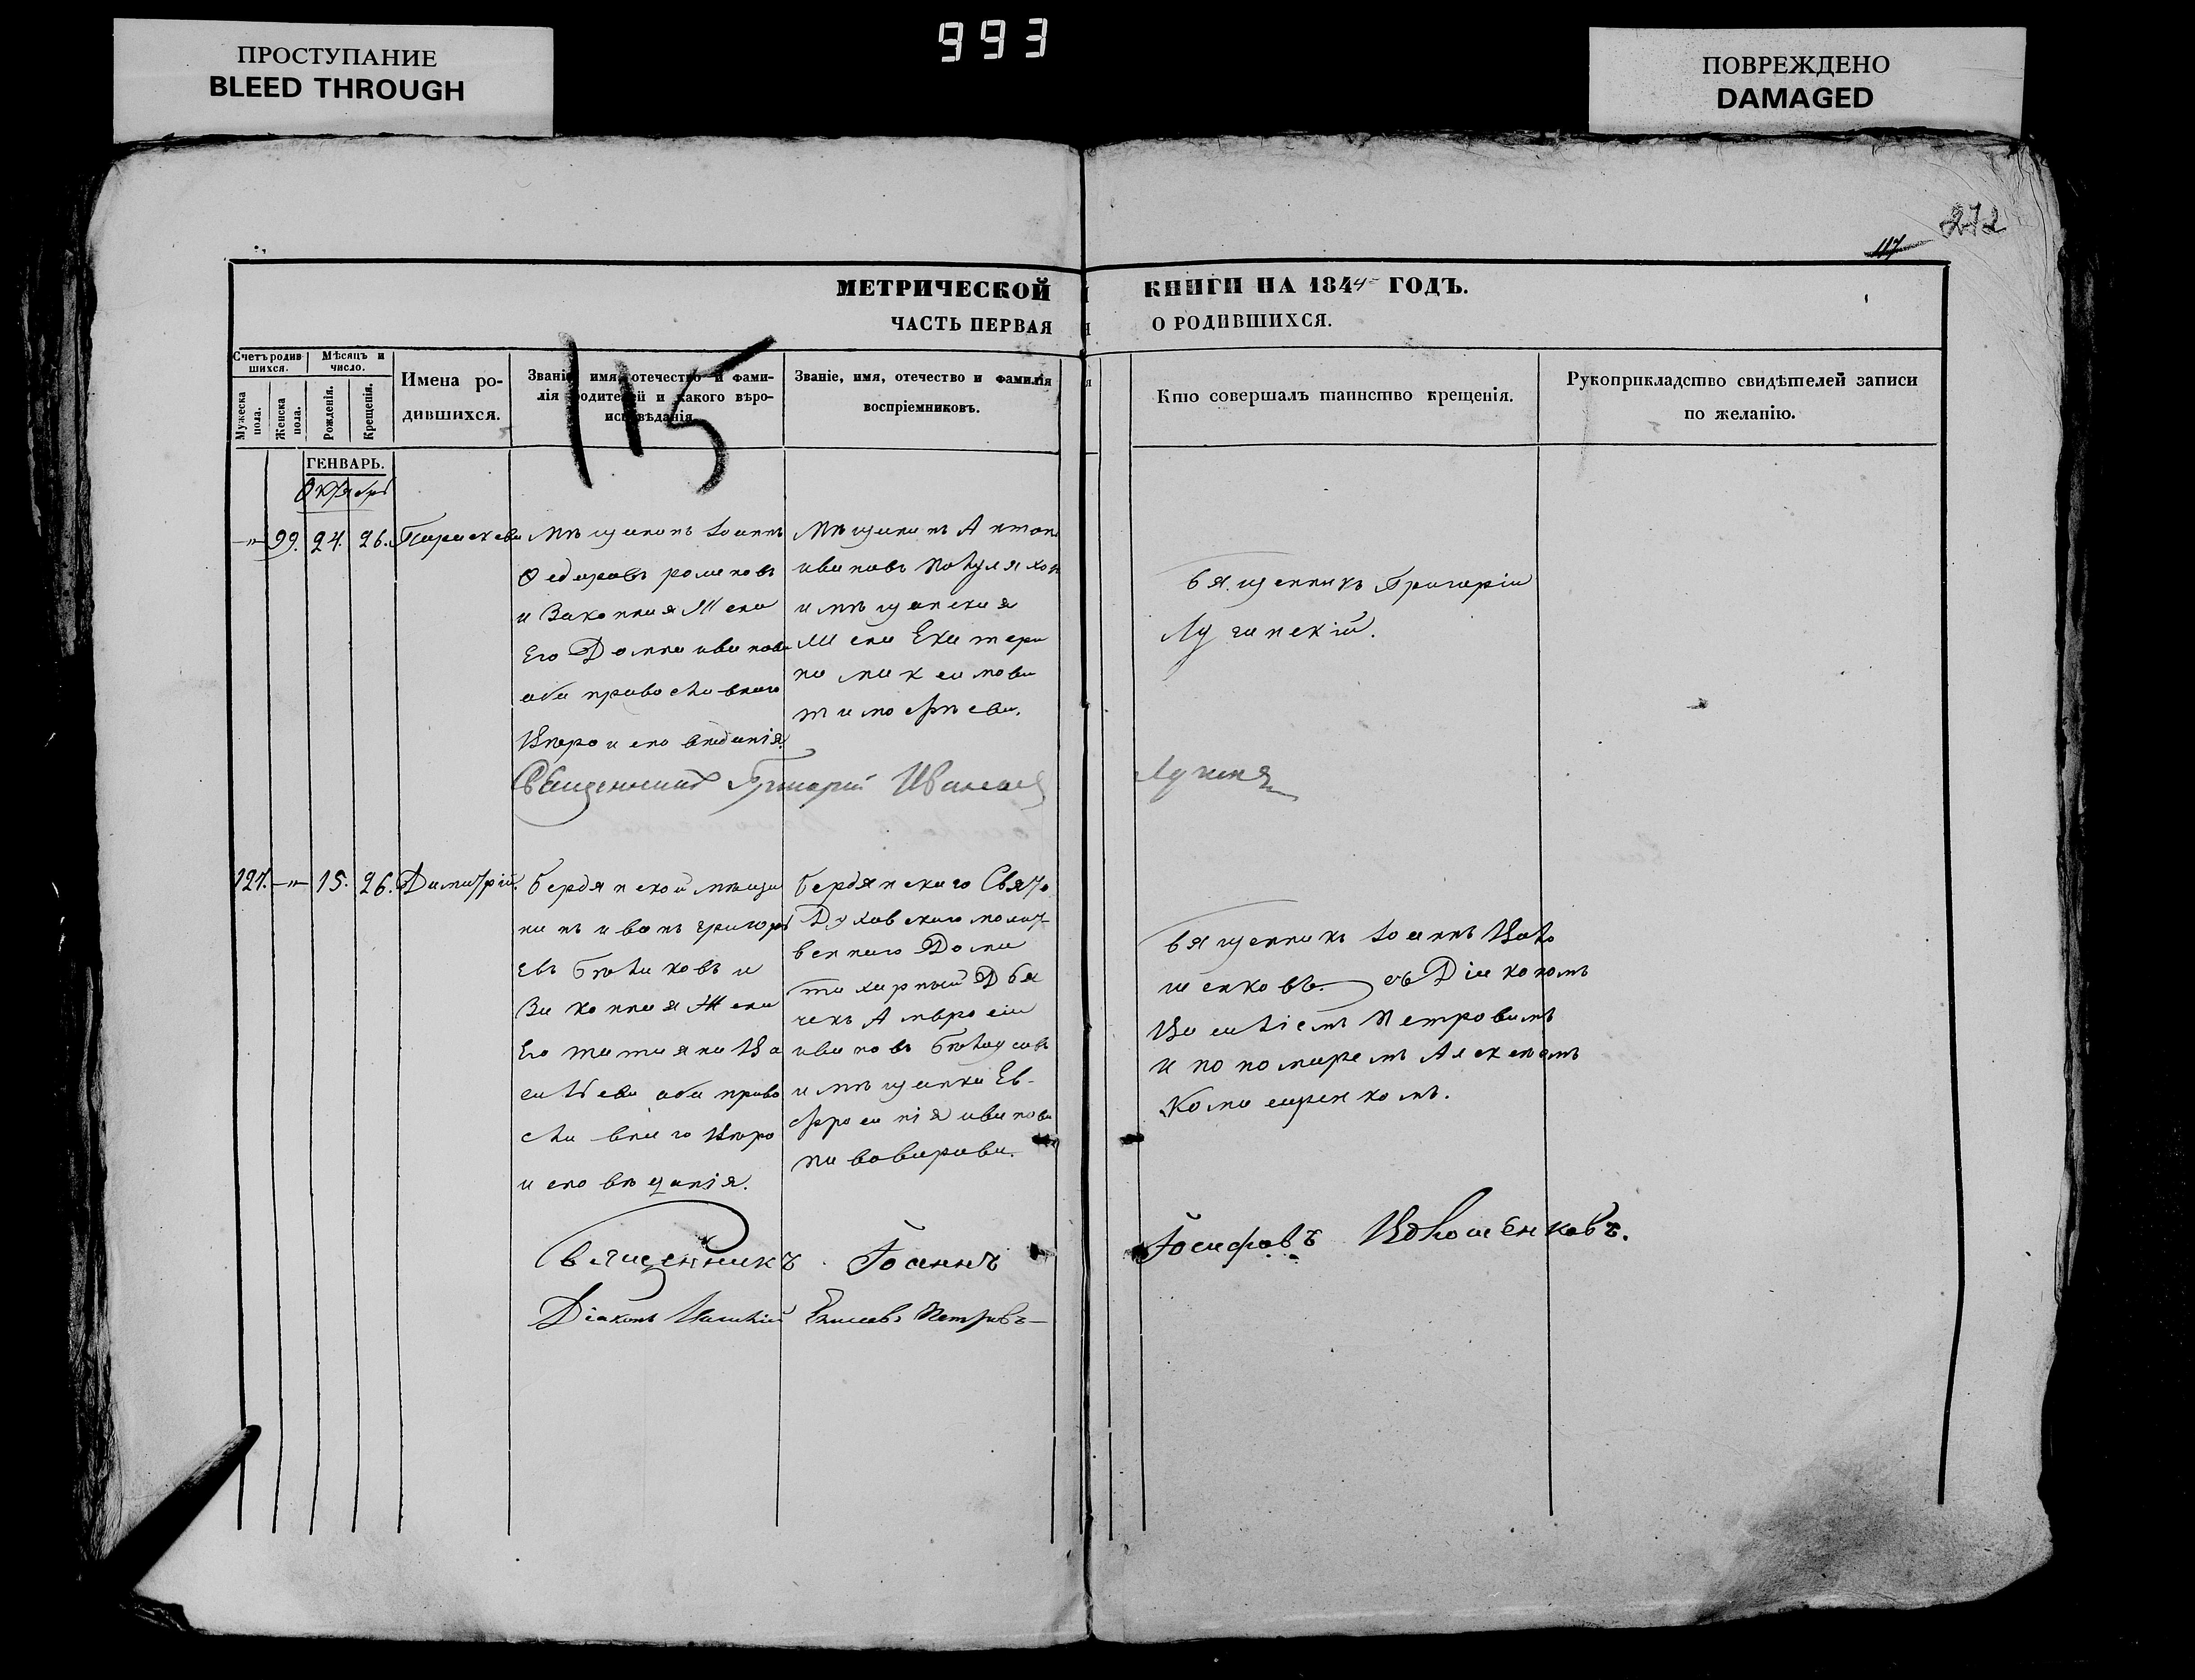 ПРОСТУПАНИЕ
BLEED THROUGH
993
ПОВРЕЖДЕНО
DAMAGED
272
117
МЕТРИЧЕСКОЙ КНИГИ НА 1844 ГОДЪ.
ЧАСТЬ ПЕРВАЯ О РОДИВШИХСЯ.
115
Счетъ родив-
шихся.
Мужеска пола.
Женска пола.
Мѣсяцъ и
число.
Рожденія.
Крещенія.
Имена ро-
дившихся.
Званіе, имя, отечество и фами-
лія родителей и какого вѣро-
исповѣданія.
Званіе, имя, отечество и фамилія
воспріемниковъ.
Кто совершалъ таинство крещенія.
Рукоприкладство свидѣтелей записи
по желанію.
ГЕНВАРЬ.
Октябрь
—"— 99. 24. 26. Параскева
Мѣщанинъ Іоаннъ
Федоровъ романовъ
и Законная Жена
Его Домна иванова
оба православнаго
Вѣроисповѣданія.
Мѣщанинъ Антонъ
ивановъ
и мѣщанская
Жена Екатери
на
тимофѣева.
Священникъ Григорій
Лучинскій.
Священникъ Григорій
127. —"— 15. 26. Димитрій.
Бердянской мѣща
нинъ иванъ григорь
евъ Бѣликовъ и
Законная Жена
Его татіяна Ва
сильева оба право
славнаго Вѣро
исповѣданія.
Бердянскаго Свято
Духовскаго молит
веннаго Дома
Дья
чекъ Амвросій
ивановъ
и мѣщанка Ев-
фросинія иванова
пивоварова.
Священникъ Іоаннъ Воло
шенковъ. съ Діакономъ
Василіемъ Петровымъ
и пономаремъ Алексѣемъ
Священникъ Іоаннъ Іосифовъ Волошенковъ.
Діаконъ Василій Петровъ